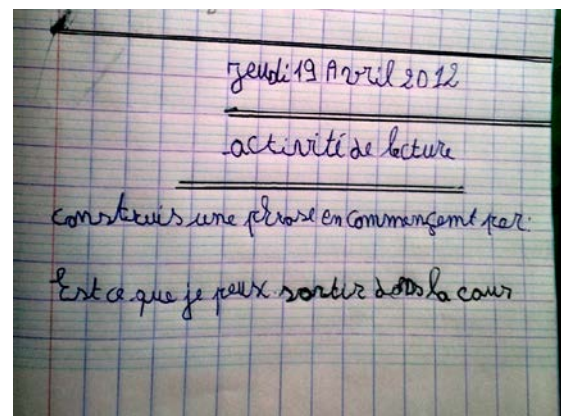 Jeudi 19 Avril 2012
activité de lecture
construis une phrase en commençant par:
Est ce que je peux sortir dans la cour